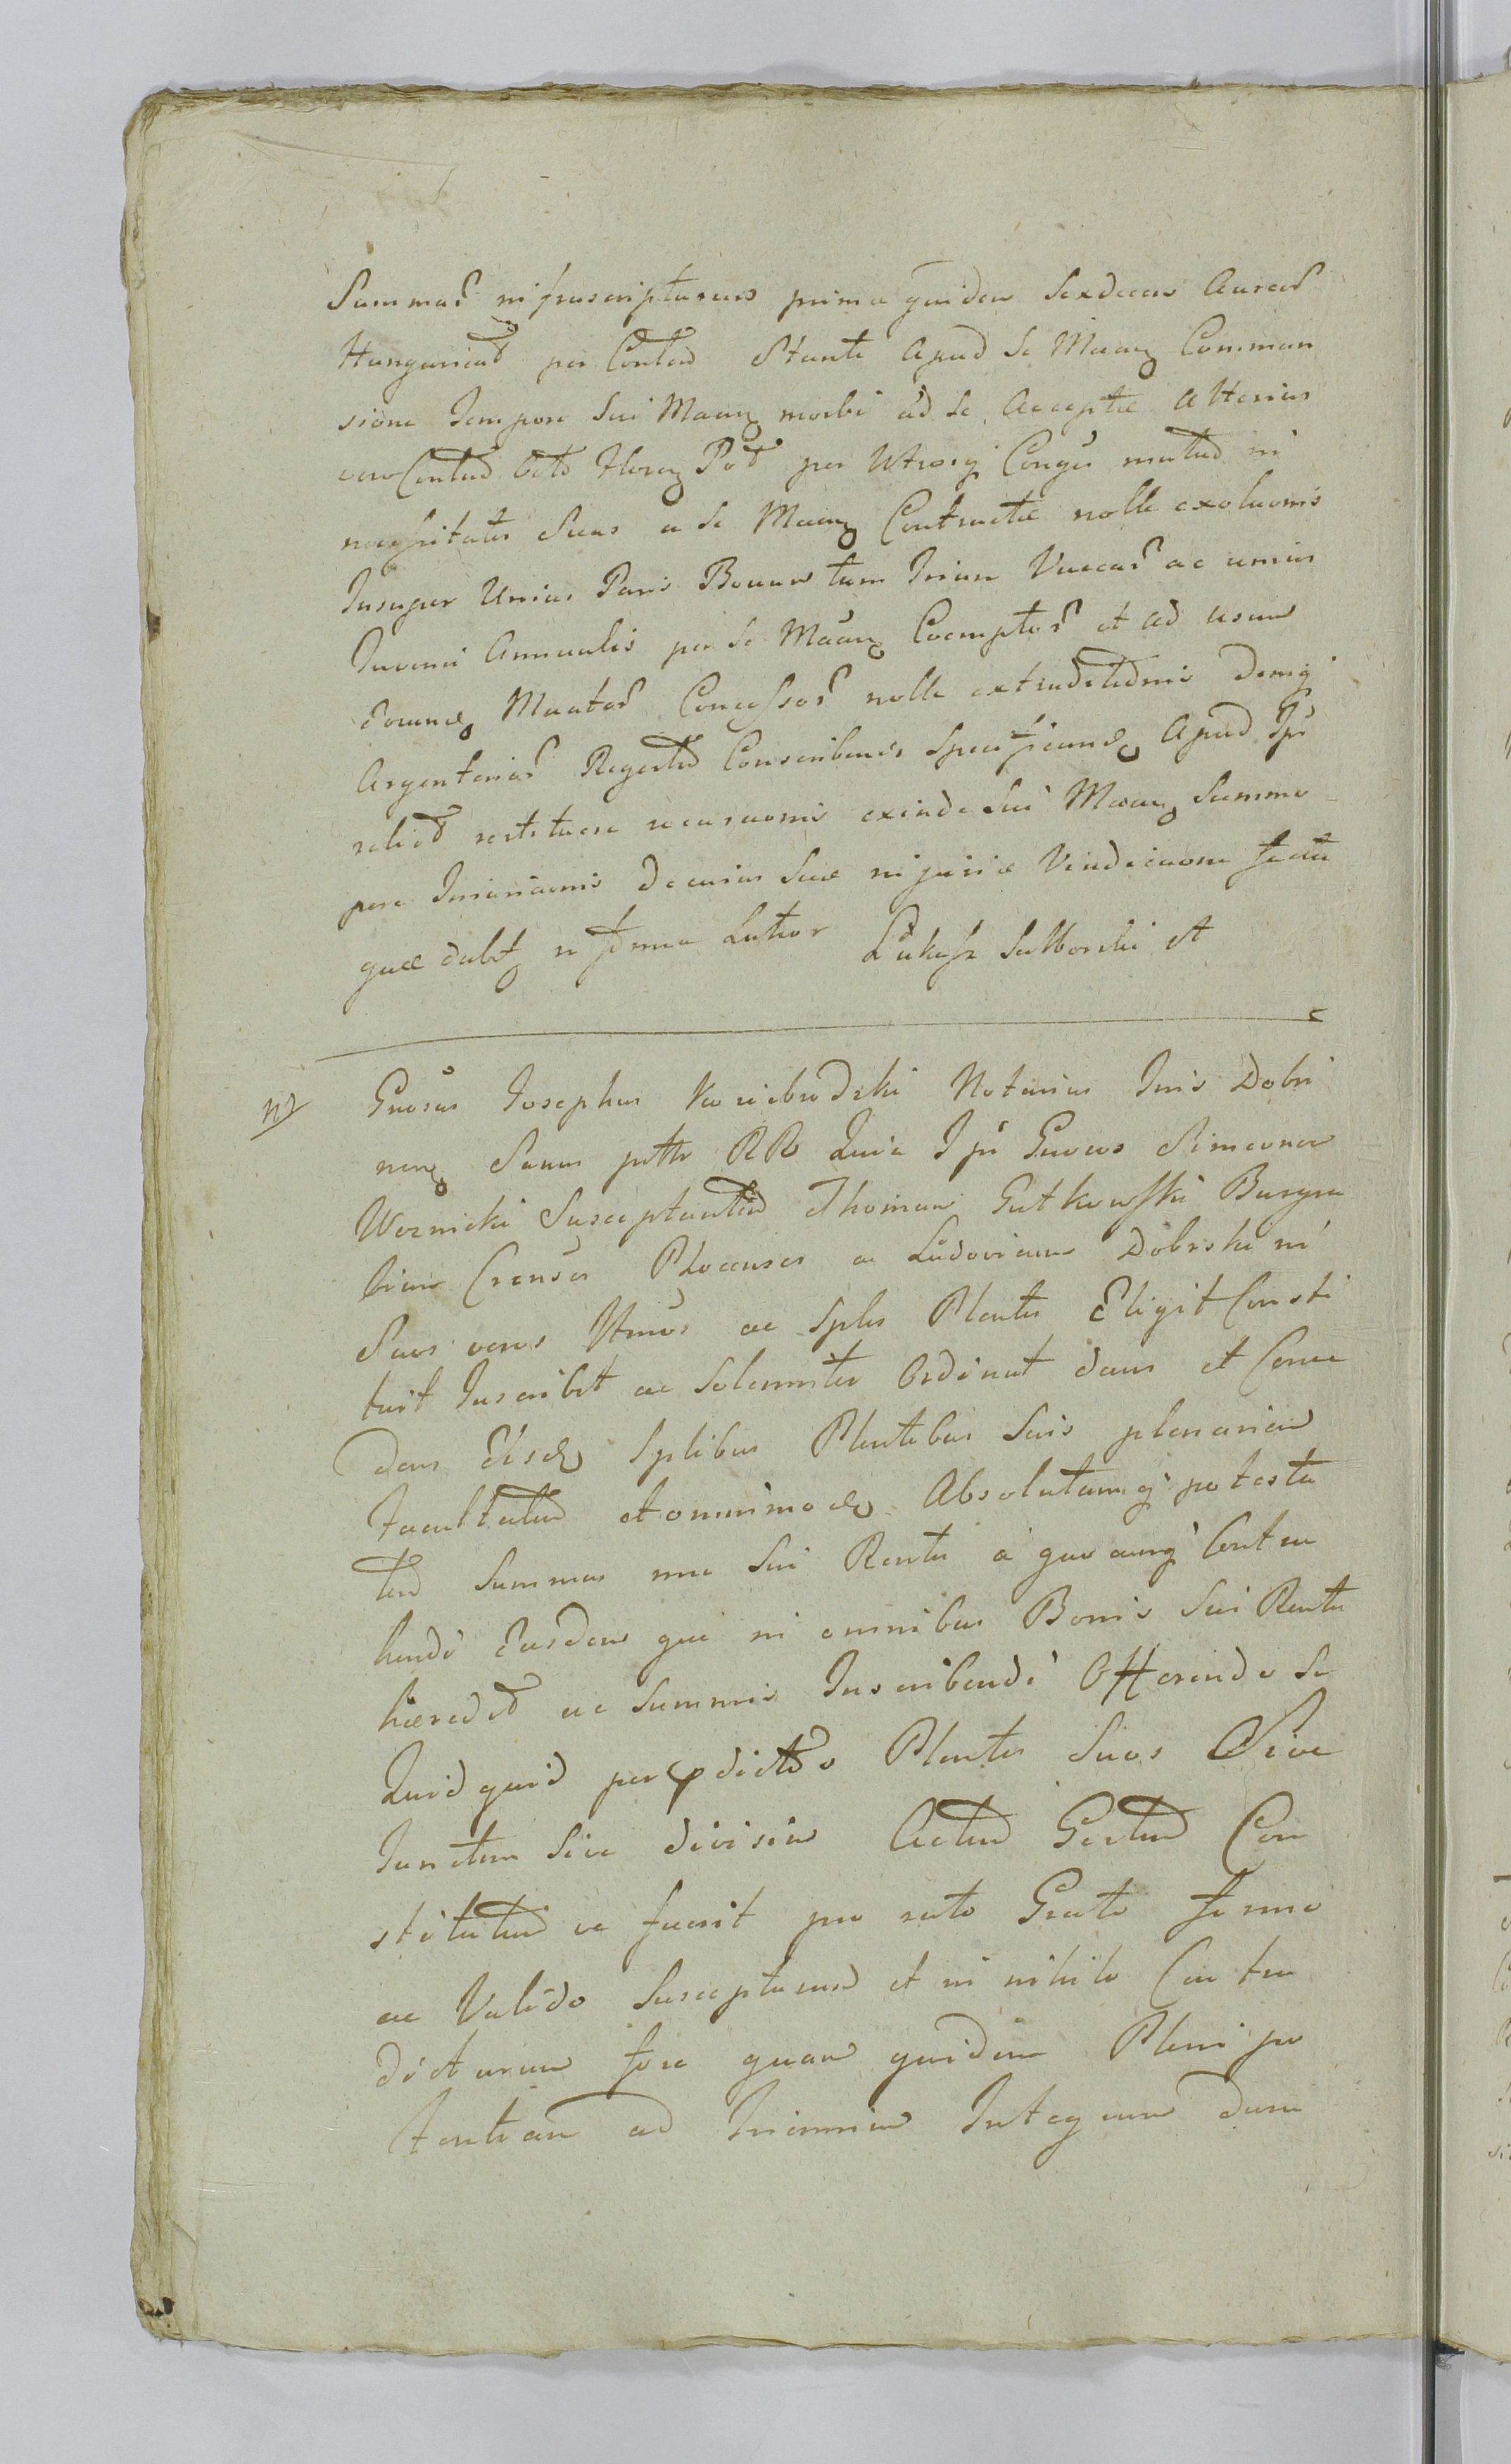 Summar infrascripturum prima quidem Sexdecim Aureor
Hungarical per Contrad Stante Apud Se Maan Comman
sione Tempore Sui Maan morbi ad Se Acceptæ Alterius
vero Centum Octo Floren Pol per Utrosq Conges mutud in
necessitates Suas a Se Maan Contractæ nolle exoluonis
Insuper Unius Paris Bouum tum Trium Vaccar ac unius
Juvenci Annualis per Se Maan Coemptor et ad usum
eorund Maator Concessor nolle extraditionis Deniq
Argenteriar Regestro Conscribenis Specificand Apud Ips
relict restituere recusaonis exinde Sui Maan Summo
pere Iniuriaonis Decuius Suæ injuriæ Vindicaone facta
quæ dabt in forma Lator Łukasz Sulborski et
nt Gnosus Josephus Koziebrodzki Notarius Tris Dobri
nen Suum ptte RR Quia Ipse Gnosos Simeonem
Woznicki Susceptantem Thomam Gutkowski Burgra
bium Crensem Plocenses ac Ludovicum Dobrski in
Suos veros Ittmos ac Sples Plentes Eligit Consti
tuit Inscribit ac Solemniter Ordinat dans et Conce
dens Eisd Splibus Plentibus Suis plenariam
Facultatem et omnimod Absolutamq potesta
tem Summas nne Sui Rentis a quocunq Contra
hendi Easdem que in omnibus Bonis Sui Rentis
hæredit ac Summis Inscribendi Offerendo Se
Quidquid per pdictos Plentes Suos Sive
Junctim Sive divisim Actum Gestum Con
stitutum ve fuerit pro rato Grato firmo
ac Valido Suscepturum et in nihilo Contra
dicturum fore quam quidem Plenipo
tentiam ad Triennium Integrum dum